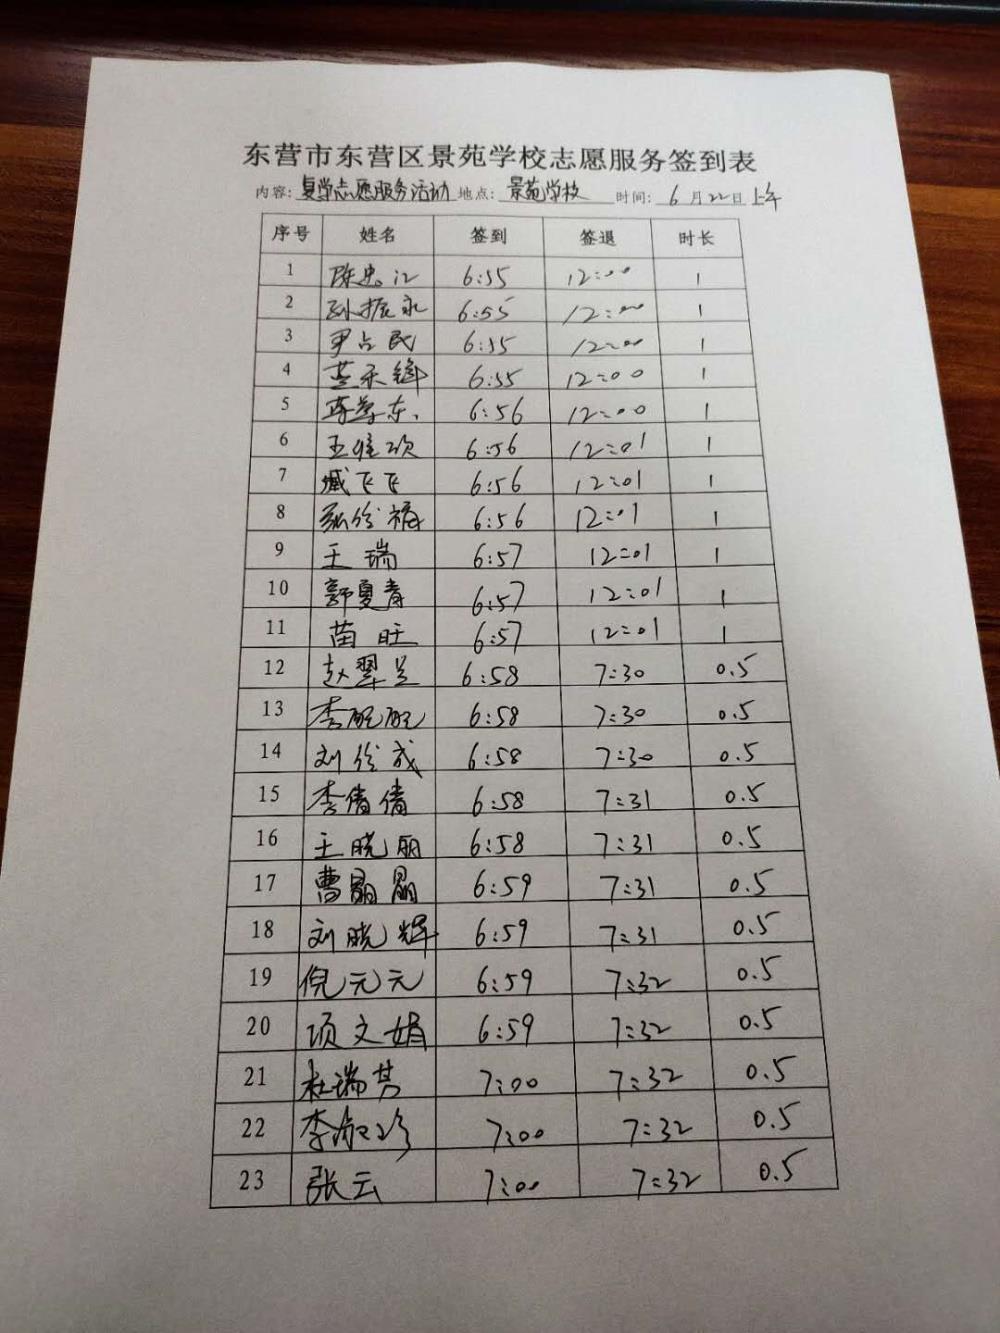 东营市东营区景苑学校志愿服务签到表
内容: 复学志愿服务活动 地点: 景苑学校 时间: 6月22日上午
序号 姓名 签到 签退 时长
1 陈忠江 6:55 12:00 1
2 孙振永 6:55 12:00 1
3 尹占民 6:55 12:00 1
4 6:55 12:00 1
5 6:56 12:00 1
6 6:56 12:01 1
7 臧飞飞 6:56 12:01 1
8 6:56 12:01 1
9 王瑞 6:57 12:01 1
10 郭夏青 6:57 12:01 1
11 苗旺 6:57 12:01 1
12 6:58 7:30 0.5
13 6:58 7:30 0.5
14 6:58 7:30 0.5
15 李倩倩 6:58 7:31 0.5
16 王晓丽 6:58 7:31 0.5
17 曹晶晶 6:59 7:31 0.5
18 刘晓辉 6:59 7:31 0.5
19 倪元元 6:59 7:32 0.5
20 项文娟 6:59 7:32 0.5
21 杜瑞芳 7:00 7:32 0.5
22 李淑珍 7:00 7:32 0.5
23 张云 7:00 7:32 0.5